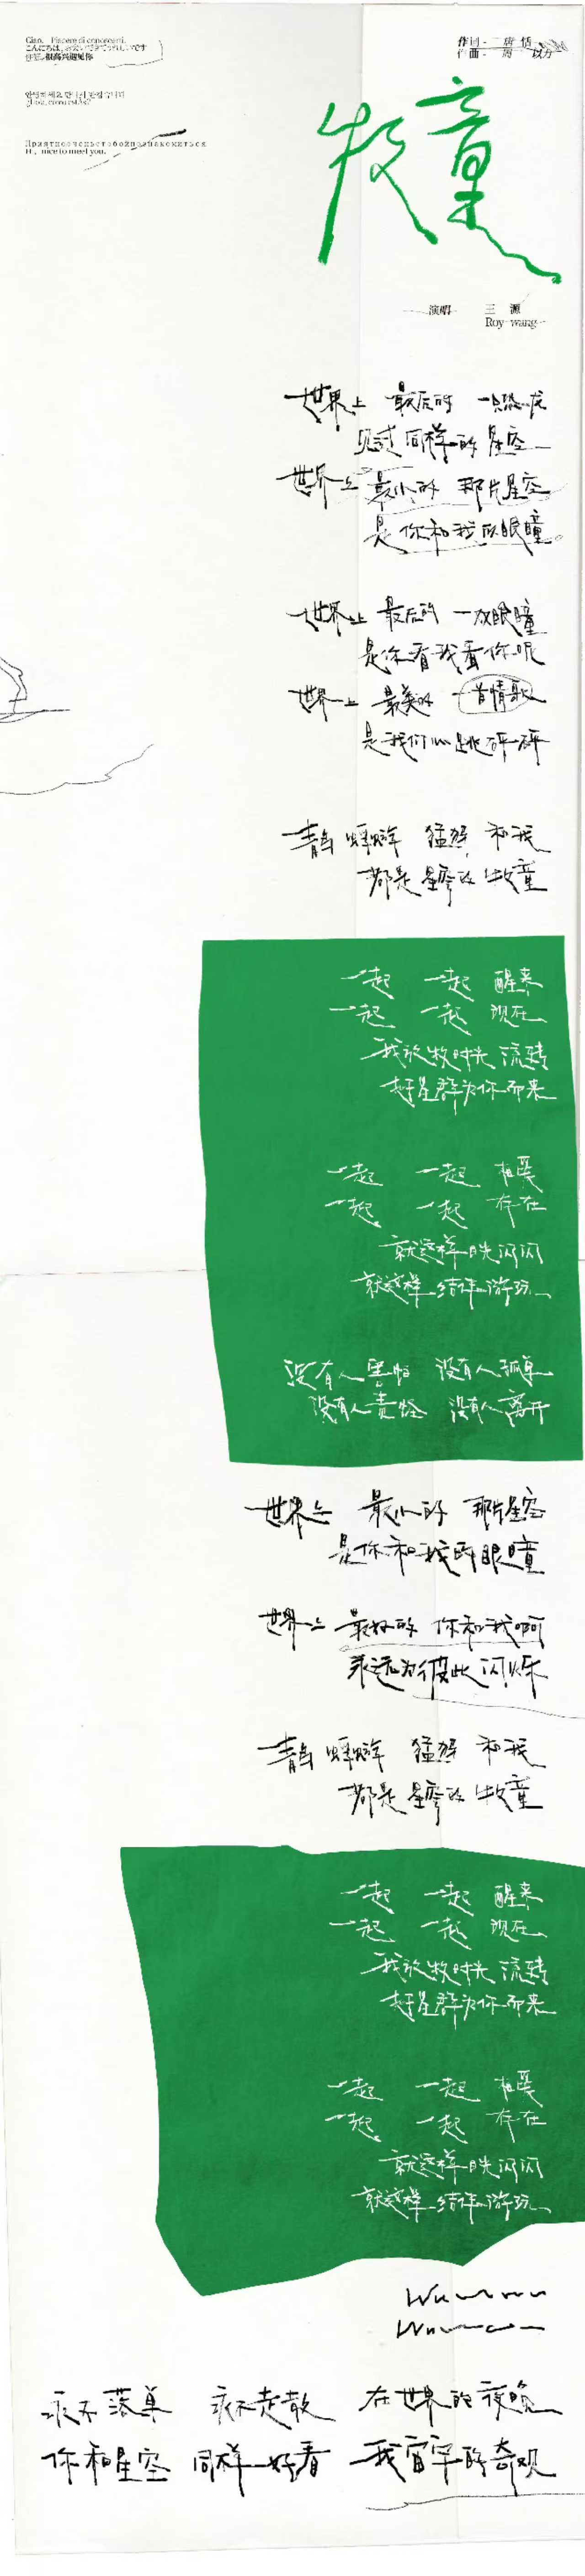 Ciao, Piacere di conoscerti.
こんにちは、お会いできてうれしいです
你好,很高兴遇见你
안녕하세요 만나서 반갑습니다
¡Hola, cómo estás?
Приятно очень с тобой познакомиться
Hi, nice to meet you.
作词 - 唐恬
作曲 - 周以力
牧童
演唱 王源
Roy wang
世界上 最后的 一只恐龙
见过同样的星空
世界上 最小的 那片星空
是你和我的眼瞳
世界上 最后的 一双眼瞳
是你看我看你呢
世界上 最美的 一首情歌
是我们心跳砰砰
青鸟 蝌蚪 猛犸 和我
都是星穹的牧童
一起 一起 醒来
一起 一起 现在
我放牧时光流转
赶星群为你而来
一起 一起 相爱
一起 一起 存在
就这样目光闪闪
就这样结伴游玩
没有人害怕 没有人孤单
没有人责怪 没有人离开
世界上 最小的 那片星空
是你和我的眼瞳
世界上 最好的 你和我啊
永远为彼此闪烁
青鸟 蝌蚪 猛犸 和我
都是星穹的牧童
一起 一起 醒来
一起 一起 现在
我放牧时光流转
赶星群为你而来
一起 一起 相爱
一起 一起 存在
就这样目光闪闪
就这样结伴游玩
Wu
Wu
永不落单 永不走散 在世界的夜晚
你和星空 同样好看 我宇宙的奇观